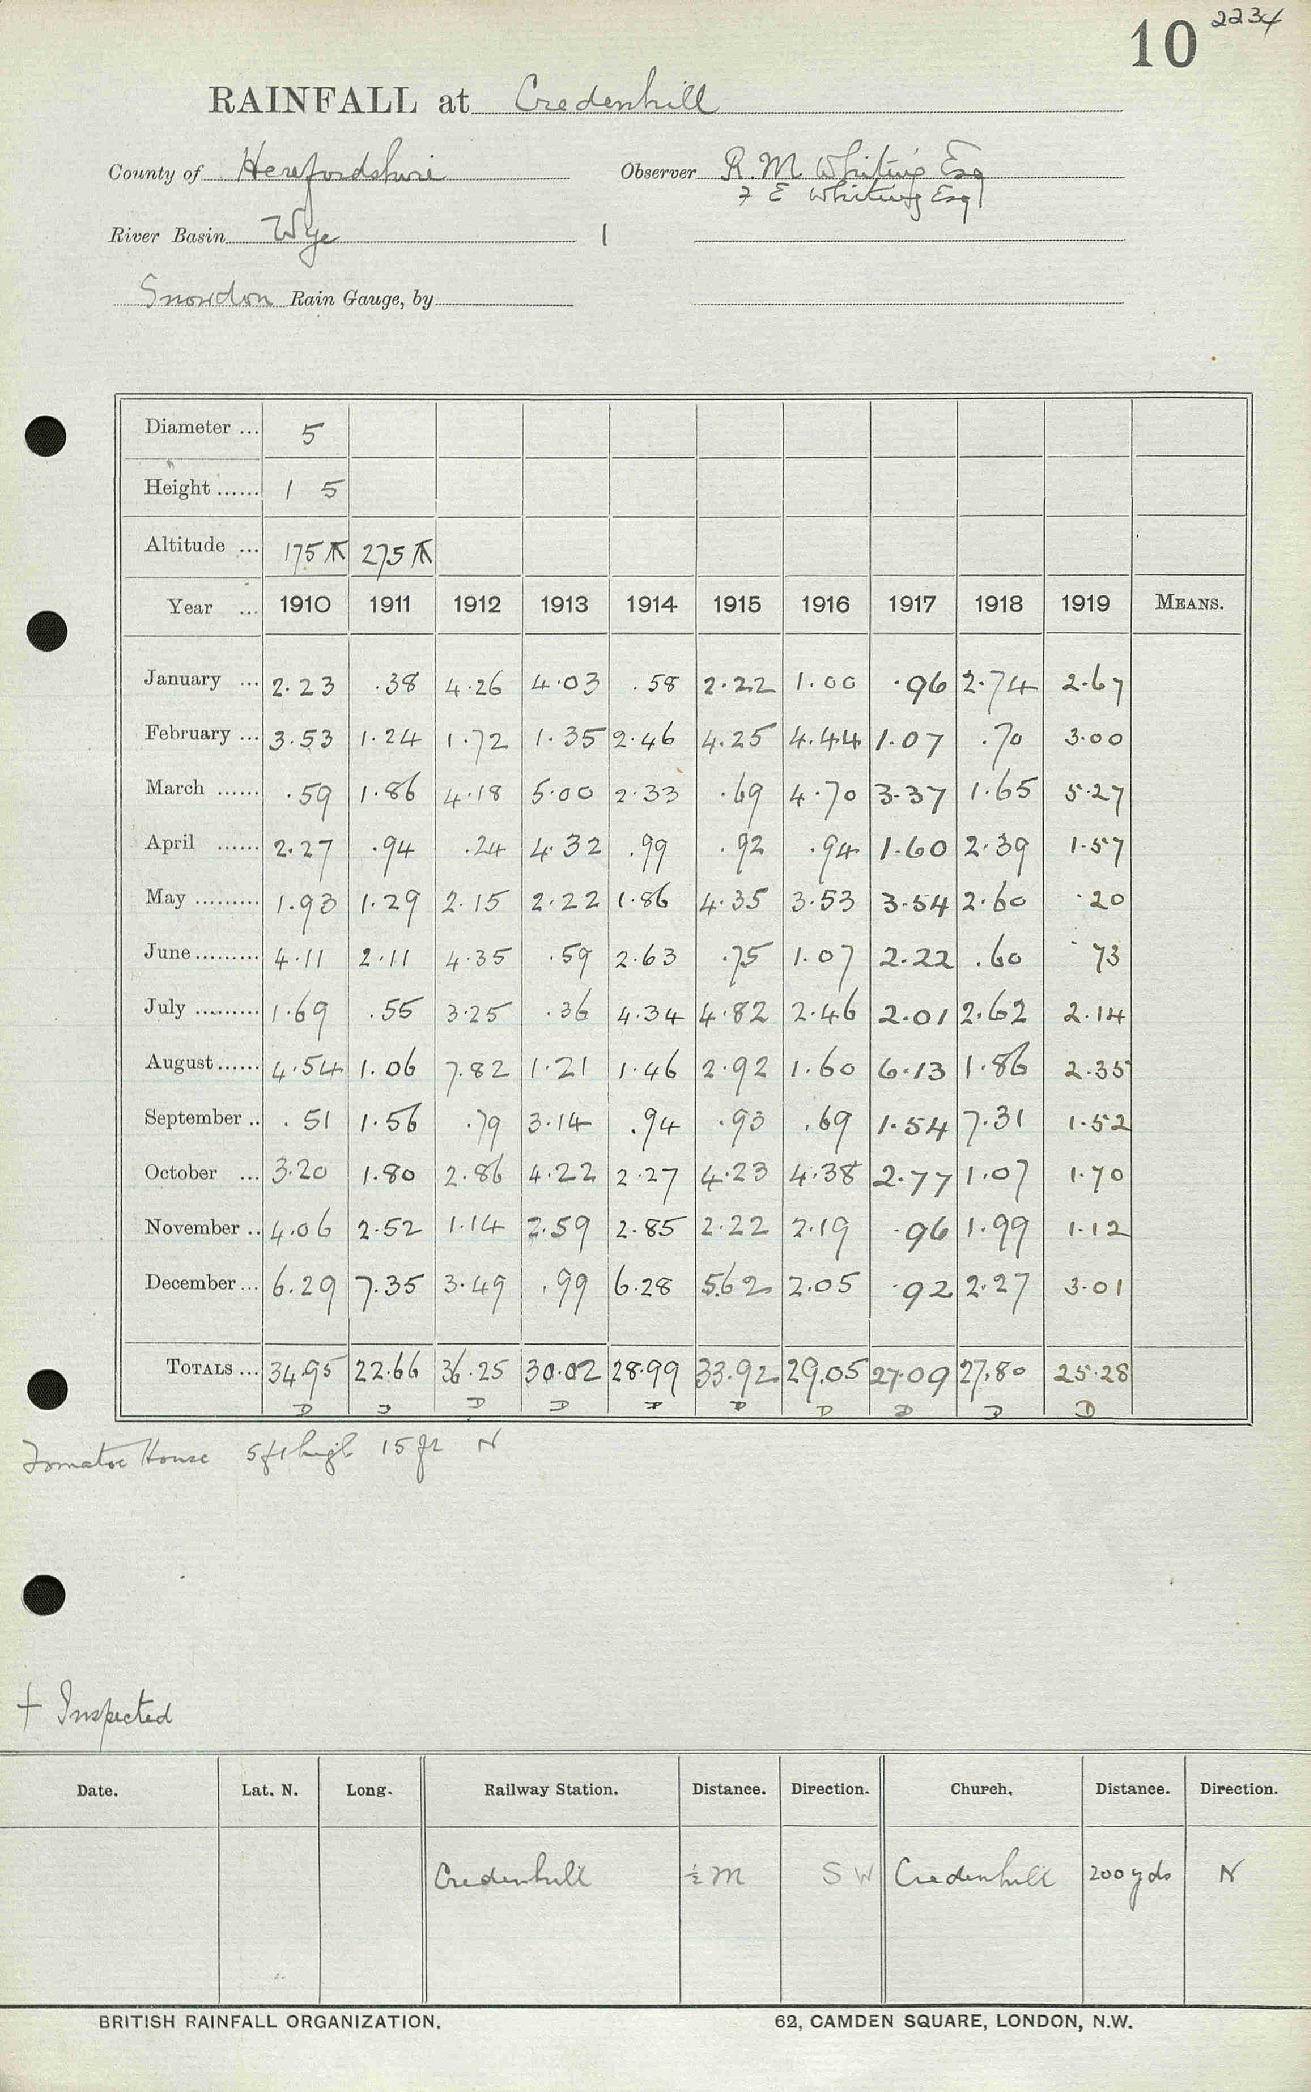 10 2234
RAINFALL at Credenhill
County of Herefordshire Observer R. M Whiting Esq
F E Whiting Esq
River Basin Wye 1
Snowdon Rain Gauge, by
Diameter ... 5
Height ...... 1 5
Altitude ... 175 275
Year ... 1910 1911 1912 1913 1914 1915 1916 1917 1918 1919 MEANS.
January ... 2.23 .38 4.26 4.03 .58 2.22 1.00 .96 2.74 2.67
February ... 3.53 1.24 1.72 1.35 2.46 4.25 4.44 1.07 .70 3.00
March ...... .59 1.86 4.18 5.00 2.33 .69 4.70 3.37 1.65 5.27
April ...... 2.27 .94 .24 4.32 .99 .92 .94 1.60 2.39 1.57
May ......... 1.93 1.29 2.15 2.22 1.86 4.35 3.53 3.54 2.60 .20
June ......... 4.11 2.11 4.35 .59 2.63 .75 1.07 2.22 .60 .73
July ......... 1.69 .55 3.25 .36 4.34 4.82 2.46 2.01 2.62 2.14
August ...... 4.54 1.06 7.82 1.21 1.46 2.92 1.60 6.13 1.86 2.35
September .. .51 1.56 .79 3.14 .94 .93 .69 1.54 7.31 1.52
October ... 3.20 1.80 2.86 4.22 2.27 4.23 4.38 2.77 1.07 1.70
November .. 4.06 2.52 1.14 2.59 2.85 2.22 2.19 .96 1.99 1.12
December ... 6.29 7.35 3.49 .99 6.28 5.62 2.05 .92 2.27 3.01
TOTALS ... 34.95 22.66 36.25 30.02 28.99 33.92 29.05 27.09 27.80 25.28
D D D D D D D D D D
Tomatoe House 5ft high 15ft N
† Inspected
Date. Lat. N. Long. Railway Station. Distance. Direction. Church. Distance. Direction.
Credenhill ½ M S W Credenhill 200 yds N
BRITISH RAINFALL ORGANIZATION. 62, CAMDEN SQUARE, LONDON, N.W.